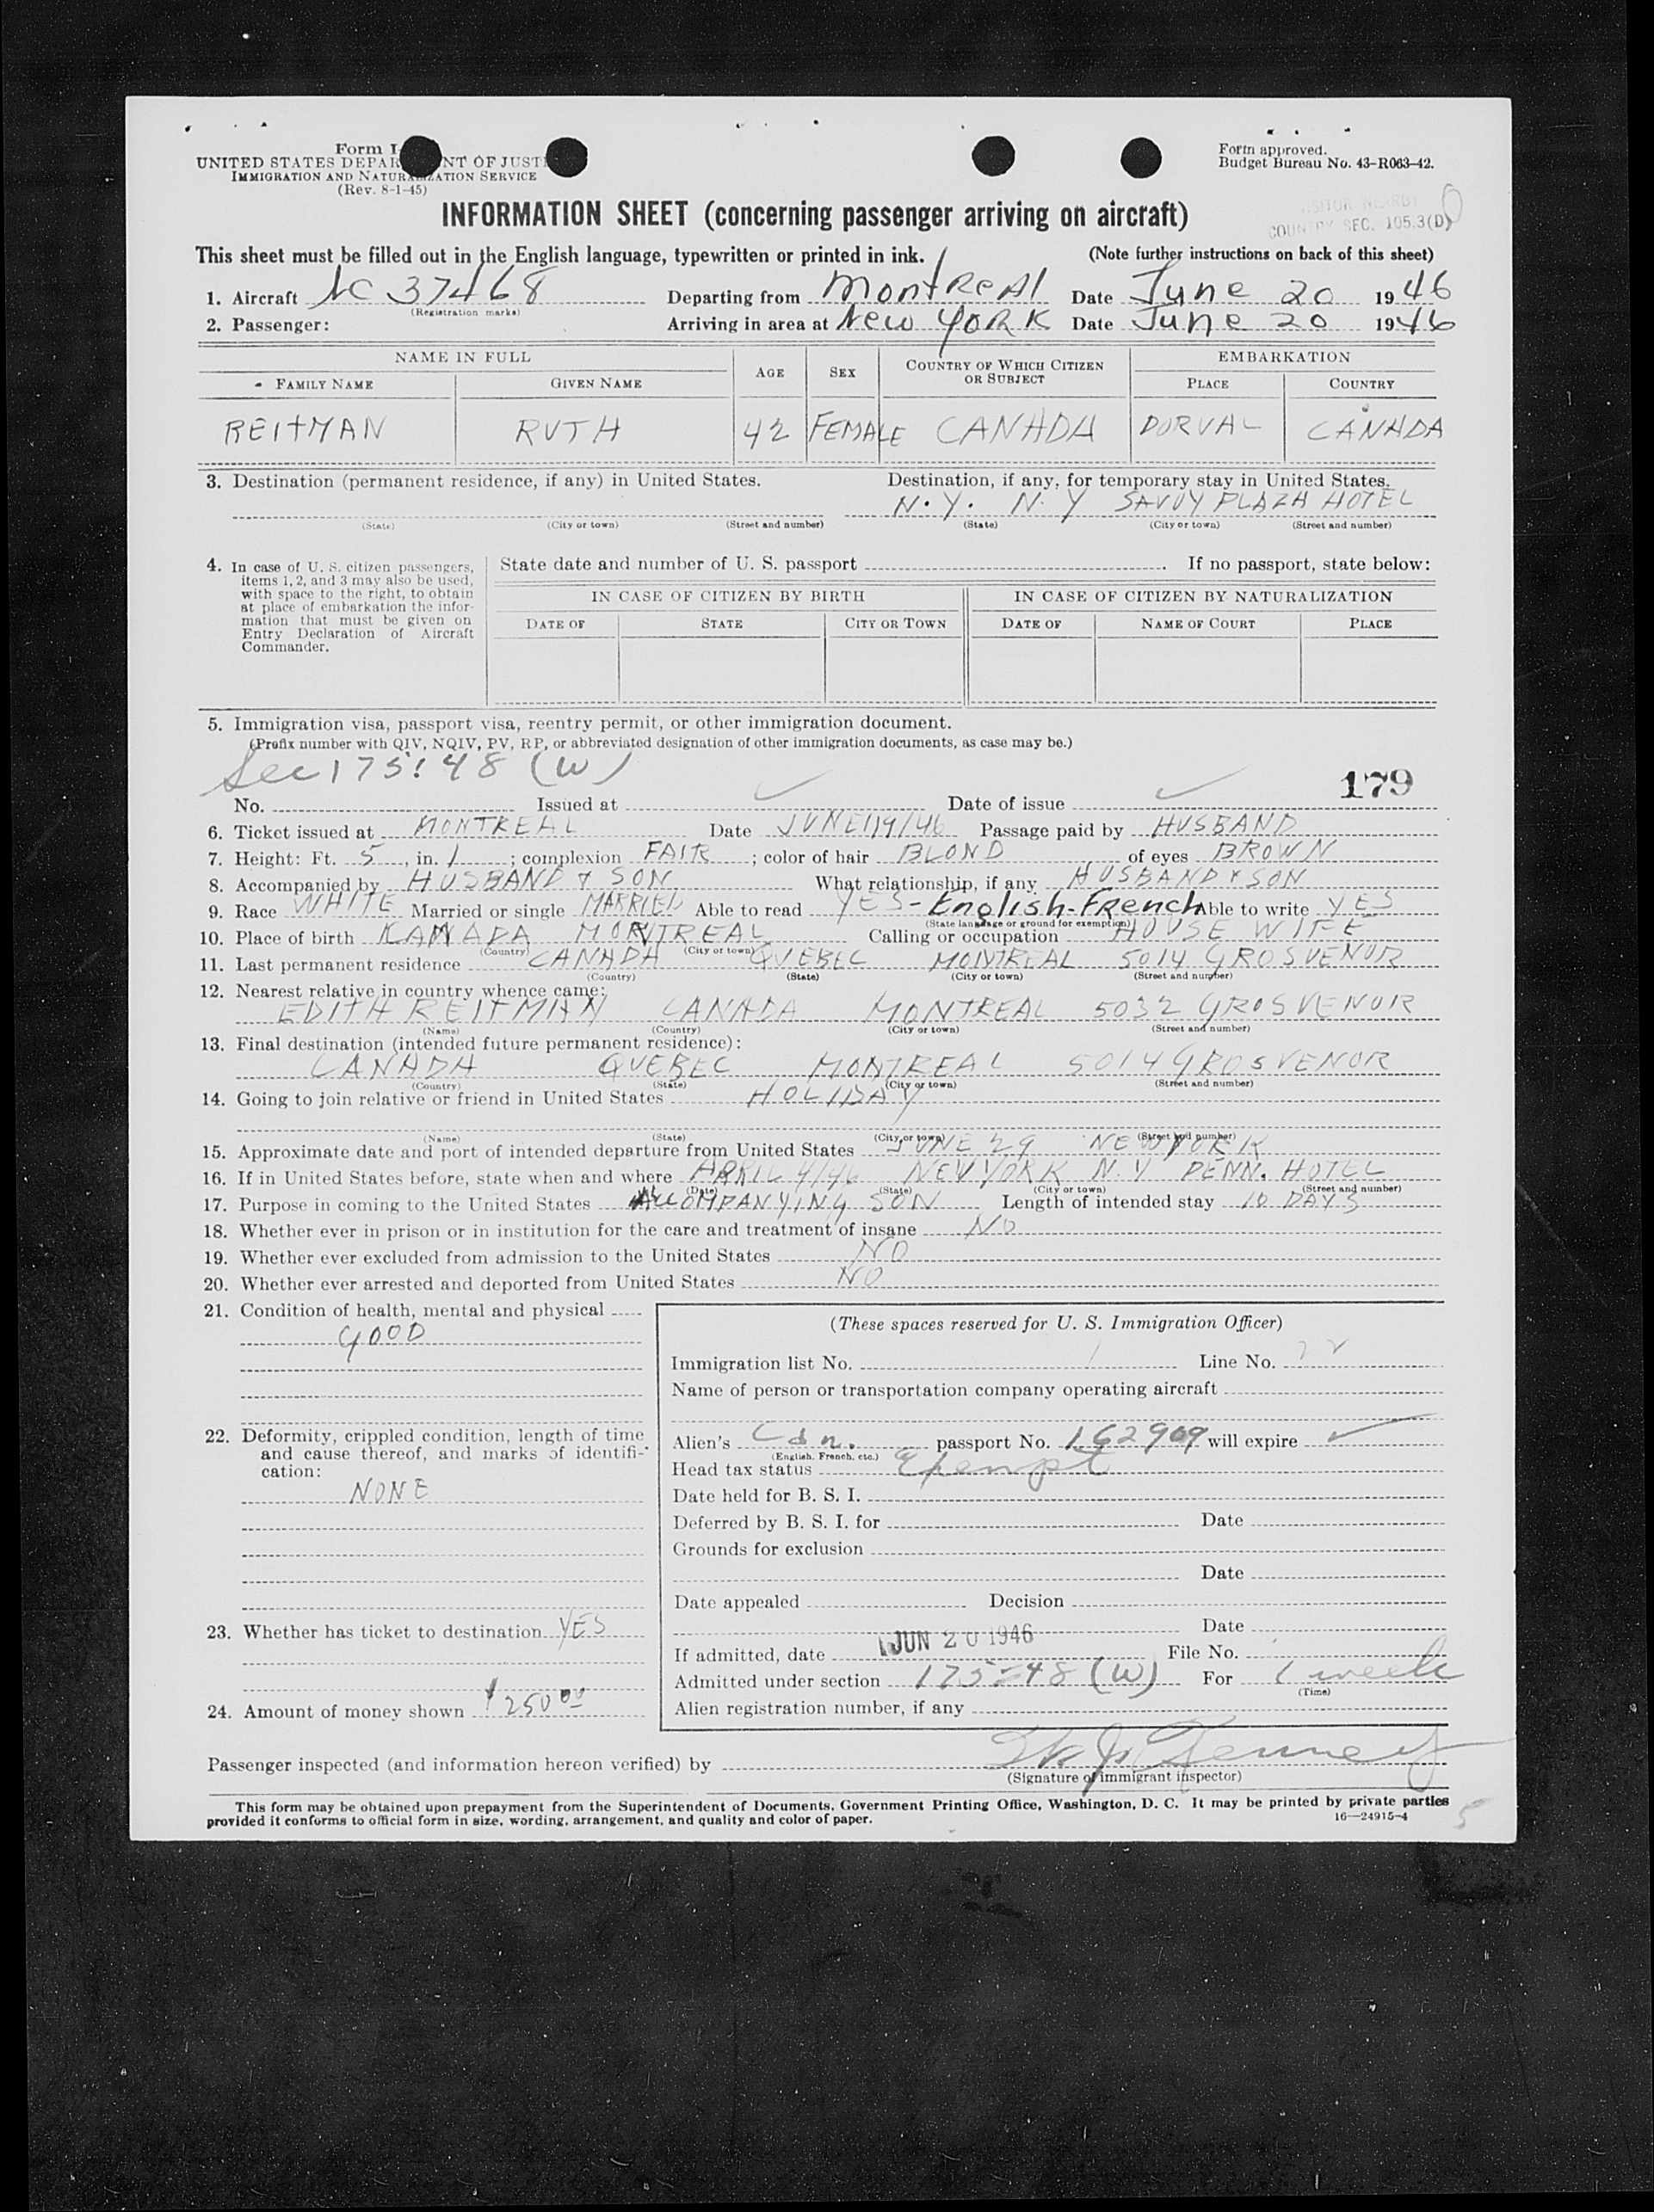 Form I-
UNITED STATES DEPAR NT OF JUSTI
IMMIGRATION AND NATURALIZATION SERVICE
(Rev. 8-1-45)
Form approved.
Budget Bureau No. 43-R063-42.
INFORMATION SHEET (concerning passenger arriving on aircraft)
COUNTRY SEC. 105.3(D)
This sheet must be filled out in the English language, typewritten or printed in ink. (Note further instructions on back of this sheet)
1. Aircraft NC 37468 Departing from Montreal Date June 20 1946
(Registration marks)
2. Passenger: Arriving in area at New York Date June 20 1946
NAME IN FULL AGE SEX COUNTRY OF WHICH CITIZEN OR SUBJECT EMBARKATION
FAMILY NAME GIVEN NAME PLACE COUNTRY
REITMAN RUTH 42 FEMALE CANADA DORVAL CANADA
3. Destination (permanent residence, if any) in United States. Destination, if any, for temporary stay in United States.
N.Y. N.Y SAVOY PLAZA HOTEL
(State) (City or town) (Street and number) (State) (City or town) (Street and number)
4. In case of U. S. citizen passengers, items 1, 2, and 3 may also be used, with space to the right, to obtain at place of embarkation the information that must be given on Entry Declaration of Aircraft Commander.
State date and number of U. S. passport . If no passport, state below:
IN CASE OF CITIZEN BY BIRTH IN CASE OF CITIZEN BY NATURALIZATION
DATE OF STATE CITY OR TOWN DATE OF NAME OF COURT PLACE
5. Immigration visa, passport visa, reentry permit, or other immigration document.
(Prefix number with QIV, NQIV, PV, RP, or abbreviated designation of other immigration documents, as case may be.)
Sec 175.48 (W)
179
No. Issued at Date of issue
6. Ticket issued at MONTREAL Date JUNE/19/46 Passage paid by HUSBAND
7. Height: Ft. 5, in. 1; complexion FAIR; color of hair BLOND of eyes BROWN
8. Accompanied by HUSBAND & SON What relationship, if any HUSBAND & SON
9. Race WHITE Married or single MARRIED Able to read YES-English-French Able to write YES
(State language or ground for exemption)
10. Place of birth KANADA MONTREAL Calling or occupation HOUSE WIFE
(Country) (City or town)
11. Last permanent residence CANADA QUEBEC MONTREAL 5014 GROSVENOR
(Country) (State) (City or town) (Street and number)
12. Nearest relative in country whence came:
EDITH REITMAN CANADA MONTREAL 5032 GROSVENOR
(Name) (Country) (City or town) (Street and number)
13. Final destination (intended future permanent residence):
CANADA QUEBEC MONTREAL 5014 GROSVENOR
(Country) (State) (City or town) (Street and number)
14. Going to join relative or friend in United States HOLIDAY
(Name) (State) (City or town) (Street and number)
15. Approximate date and port of intended departure from United States JUNE 29 NEW YORK
16. If in United States before, state when and where APRIL 4/46 NEW YORK N.Y PENN. HOTEL
(Date) (State) (City or town) (Street and number)
17. Purpose in coming to the United States ACCOMPANYING SON Length of intended stay 10 DAYS
18. Whether ever in prison or in institution for the care and treatment of insane NO
19. Whether ever excluded from admission to the United States NO
20. Whether ever arrested and deported from United States NO
21. Condition of health, mental and physical
GOOD
22. Deformity, crippled condition, length of time and cause thereof, and marks of identification:
NONE
23. Whether has ticket to destination YES
24. Amount of money shown $250.00
(These spaces reserved for U. S. Immigration Officer)
Immigration list No. Line No.
Name of person or transportation company operating aircraft
Alien's Cdn. passport No. 162909 will expire
(English, French, etc.)
Head tax status Exempt
Date held for B. S. I.
Deferred by B. S. I. for Date
Grounds for exclusion
Date
Date appealed Decision
Date
If admitted, date JUN 20 1946 File No.
Admitted under section 175-48 (W) For 1 week
(Time)
Alien registration number, if any
Passenger inspected (and information hereon verified) by
(Signature of immigrant inspector)
This form may be obtained upon prepayment from the Superintendent of Documents, Government Printing Office, Washington, D. C. It may be printed by private parties
provided it conforms to official form in size, wording, arrangement, and quality and color of paper. 16—24915-4